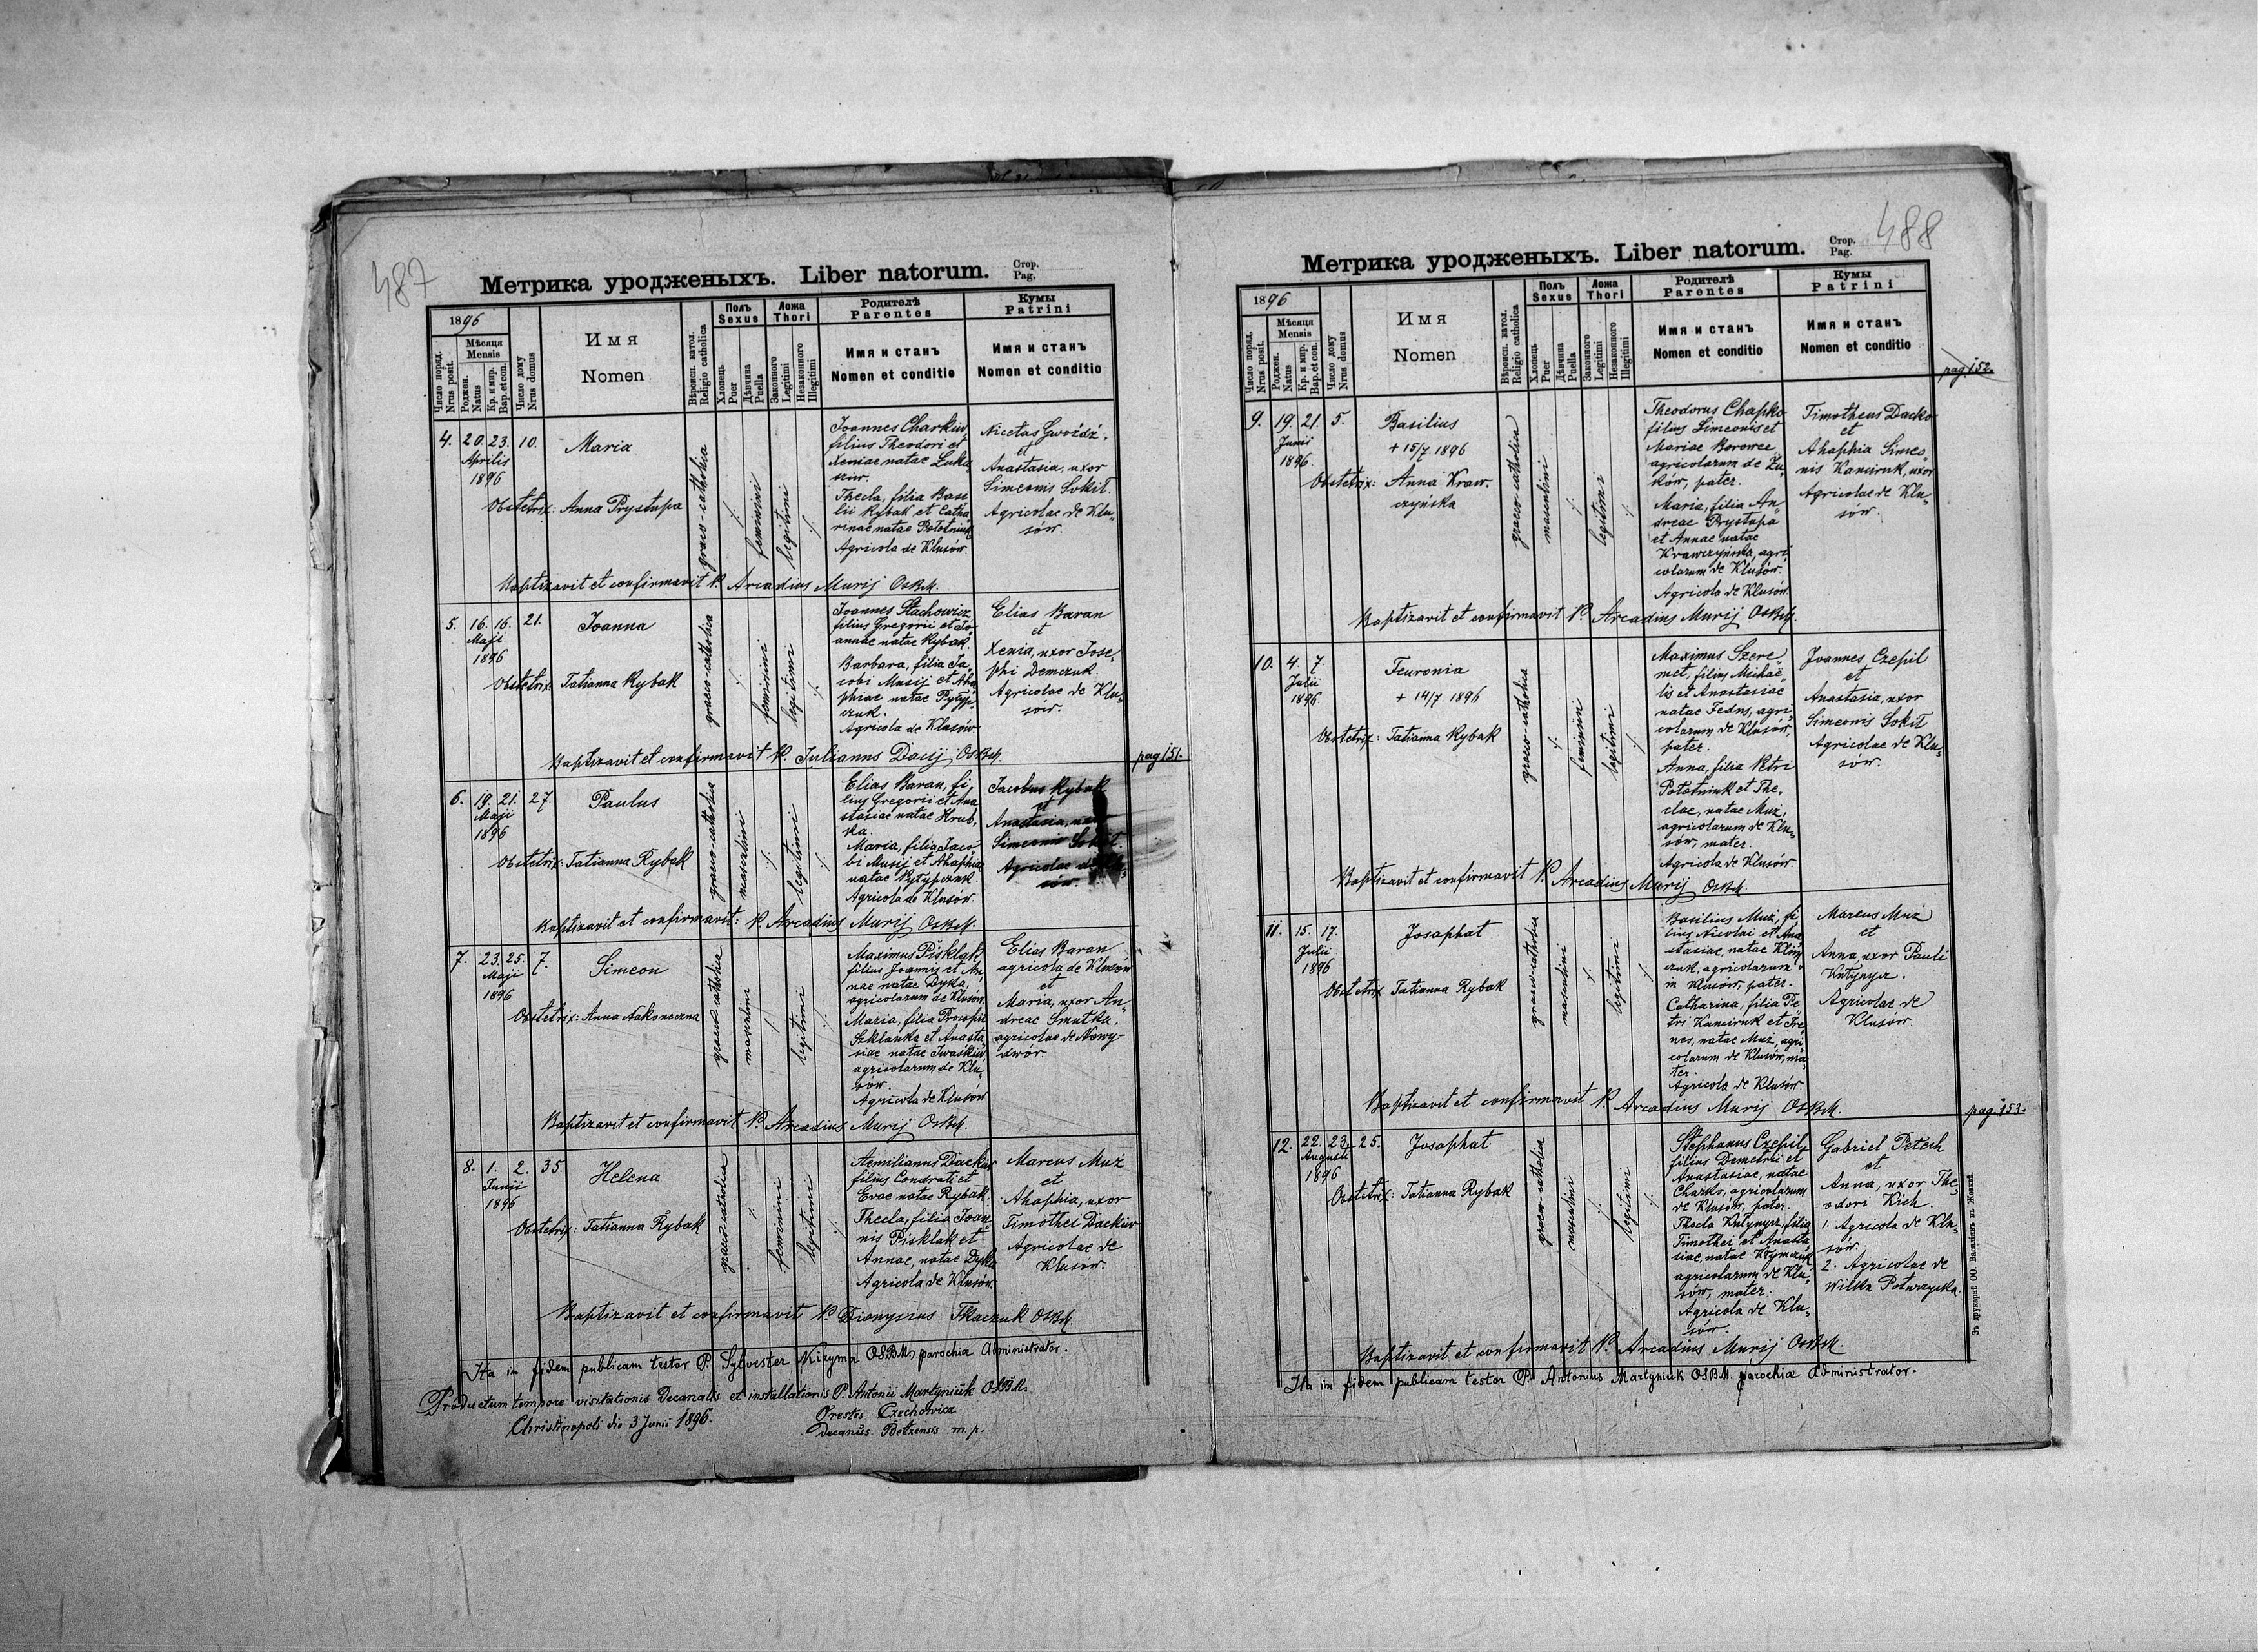 487
Метрика уродженыхъ. Liber natorum.
Стор.
Pag.
1896
Число поряд.
Nrus posit.
Мѣсяця
Mensis
Роджен.
Natus
Кр. и мир.
Bap. et con.
Число дому
Nrus domus
Имя
Nomen
Вѣроисп. катол.
Religio catholica
Полъ
Sexus
Хлопець
Puer
Дѣвчина
Puella
Ложа
Thori
Законного
Legitimi
Незаконного
Illegitimi
Родителѣ
Parentes
Имя и станъ
Nomen et conditio
Кумы
Patrini
Имя и станъ
Nomen et conditio
4. 20. 23. 10. Maria
Aprilis
1896
Obstetrix: Anna Prystupa
graeco-catholica
feminini
legitimi
Joannes Charkiw
filius Theodori et
Xeniae natae Luka
sciw.
Thecla, filia Basi
lii Rybak et Catha
rinae natae Połotniuk
Agricola de Klusów.
Nicetas Gwoźdź
et
Anastasia, uxor
Simeonis Sokił.
Agricolae de Klu„
sów.
Baptizavit et confirmavit P. Arcadius Murij OSBM.
5. 16. 16. 21. Joanna
Maji
1896
Obstetrix: Tatianna Rybak
graeco-catholica
feminini
legitimi
Joannes Stachowicz
filius Gregorii et Jo
annae natae Rybak.
Barbara, filia Ja„
cobi Musij et Aha
phiae natae Pyłyp„
czuk.
Agricola de Klusów
Elias Baran
et
Xenia, uxor Jose„
phi Demczuk
Agricolae de Klu„
sów.
Baptizavit et confirmavit P. Julianus Dacij OSBM.
pag 151.
6. 19. 21. 27. Paulus
Maji
1896
Obstetrix: Tatianna Rybak
graeco-catholica
masculini
legitimi
Elias Baran, fi„
lius Gregorii et Ana
stasiae natae Hrub„
ka.
Maria, filia Jaco
bi Musij et Ahaphiae
natae Pyłypczuk.
Agricola de Klusów.
Jacobus Rybak
et
Anastasia, uxor
Simeonis Sokił.
Agricolae de Klu„
sów.
Baptizavit et confirmavit: P. Arcadius Murij OSBM.
7. 23. 25. 7. Simeon
Maji
1896
Obstetrix: Anna Nakoneczna
graeco-catholica
masculini
legitimi
Maximus Pisklak,
filius Joannis et An„
nae natae Dyka,
agricolarum de Klusów.
Maria, filia Procopii
Szklanka et Anasta
siae natae Iwaśkiw,
agricolarum de Klu„
sów.
Agricola de Klusów
Elias Baran
agricola de Klusów
et
Maria, uxor An„
dreae Smutka,
agricolae de Nowy-
dwór.
Baptizavit et confirmavit P. Arcadius Murij OSBM.
8. 1. 2. 35. Helena
Junii
1896
Obstetrix: Tatianna Rybak
graeco-catholica
feminini
legitimi
Aemilianus Dackiw
filius Condrati et
Evae natae Rybak.
Thecla, filia Joan„
nis Pisklak et
Annae, natae Dyka
Agricola de Klusów.
Marcus Muż
et
Ahaphia, uxor
Timothei Dackiw
Agricolae de
Klusów.
Baptizavit et confirmavit P. Dionysius Tkaczuk OSBM.
Ita in fidem publicam testor P. Sylvester Kizyma OSBM, parochiae Administrator.
Productum tempore visitationis Decanalis et installationis P. Antonii Martyniuk OSBM.
Christinopoli die 3 Junii 1896.
Orestes Czechowicz
Decanus Bełzensis m. p.
488
Метрика уродженыхъ. Liber natorum.
Стор.
Pag.
1896
Число поряд.
Nrus posit.
Мѣсяця
Mensis
Роджен.
Natus
Кр. и мир.
Bap. et con.
Число дому
Nrus domus
Имя
Nomen
Вѣроисп. катол.
Religio catholica
Полъ
Sexus
Хлопець
Puer
Дѣвчина
Puella
Ложа
Thori
Законного
Legitimi
Незаконного
Illegitimi
Родителѣ
Parentes
Имя и станъ
Nomen et conditio
Кумы
Patrini
Имя и станъ
Nomen et conditio
pag. 152.
9. 19. 21. 5. Basilius
Junii
1896.
+ 15/7 1896
Obstetrix: Anna Kraw„
czyńska
graeco-catholica
masculini
legitimi
Theodorus Chapko
filius Simeonis et
Mariae Borowec
agricolarum de Żu„
ków, pater.
Maria, filia An„
dreae Prystupa
et Annae natae
Krawczyńska, agri
colarum de Klusów.
Agricola de Klusów
Timotheus Dacko
et
Ahaphia Simeo„
nis Kanciruk, uxor
Agricolae de Klu„
sów.
Baptizavit et confirmavit P. Arcadius Murij OSBM.
10. 4. 7. Feuronia
Julii
1896.
+ 14/7 1896
Obstetrix: Tatianna Rybak
graeco-catholica
feminini
legitimi
Maximus Szere„
met, filius Michaë„
lis et Anastasiae
natae Fedus, agri„
colarum de Klusów,
pater.
Anna, filia Petri
Połotniuk et The„
clae, natae Muż,
agricolarum de Klu„
sów, mater.
Agricola de Klusów.
Joannes Czepil
et
Anastasia, uxor
Simeonis Sokił
Agricolae de Klu„
sów.
Baptizavit et confirmavit P. Arcadius Murij OSBM.
11. 15. 17. Josaphat
Julii
1896
Obstetrix: Tatianna Rybak
graeco-catholica
masculini
legitimi
Basilius Muż, fi„
lius Nicolai et Ana
stasiae, natae Klim
czuk, agricolarum
in Klusów, pater.
Catharina, filia Pe„
tri Kanciruk et Ire„
nes, natae Muż, agri
colarum de Klusów, ma„
ter.
Agricola de Klusów.
Marcus Muż
et
Anna, uxor Pauli
Kułynycz.
Agricolae de
Klusów.
Baptizavit et confirmavit P. Arcadius Murij OSBM.
pag. 153.
12. 22. 23. 25. Josaphat
Augusti
1896
Obstetrix: Tatianna Rybak
graeco-catholica
masculini
legitimi
Stephanus Czepil,
filius Demetrii et
Anastasiae, natae
Charko, agricolarum
de Klusów, pater.
Thecla Kułynycz, filia
Timothei et Anasta
siae, natae
agricolarum de Klu„
sów, mater.
Agricola de Klu„
sów.
Gabriel Petech
et
Anna, uxor The„
odori Kich.
1. Agricola de Klu„
sów.
2. Agricolae de
Wilka Poturzycka.
Baptizavit et confirmavit P. Arcadius Murij OSBM.
Ita in fidem publicam testor P. Antonius Martyniuk OSBM. parochiae Administrator.
Зъ друкарнѣ ОО. Василіянъ въ Жовквѣ